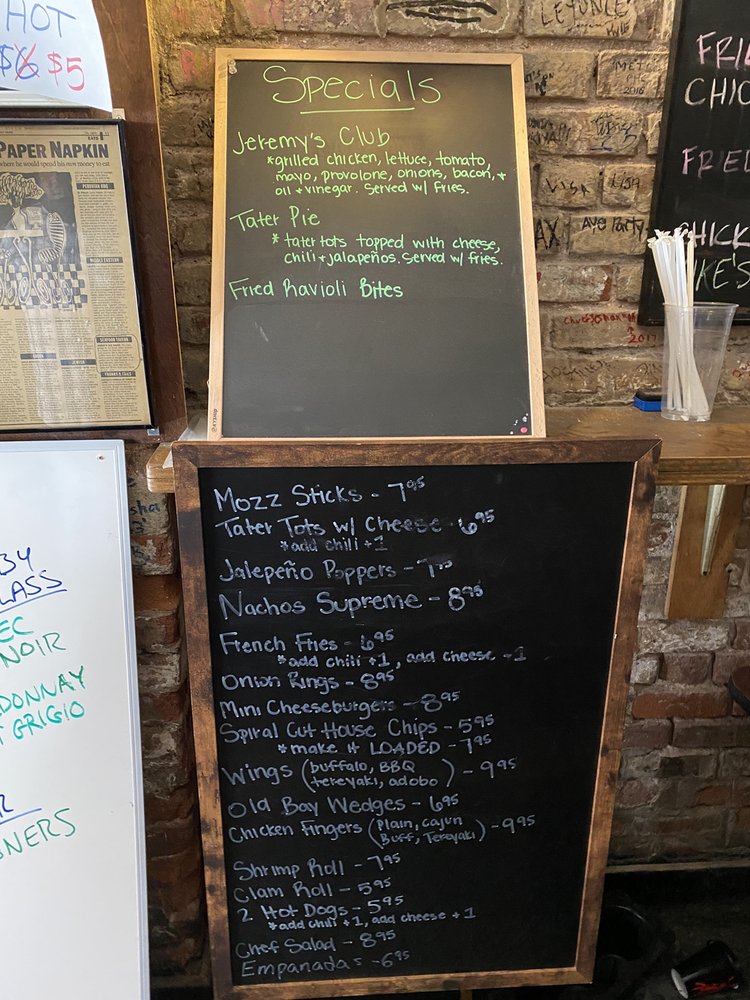 HOT
$6 $5
PAPER NAPKIN
where he would spend his own money to eat
PERUVIAN BBQ
MIDDLE EASTERN
Specials
Jeremy's Club
*grilled chicken, lettuce, tomato,
mayo, provolone, onions, bacon, +
oil + vinegar. Served w/ fries.
Tater Pie
* tater tots topped with cheese,
chili + jalapeños. Served w/ fries.
Fried Ravioli Bites
CHIC
FRIED
Ave Party
LISA
2017
Mozz Sticks - 7.95
Tater Tots w/ Cheese - 6.95
*add chili +1
Jalepeño Poppers - 7.95
Nachos Supreme - 8.95
French Fries - 6.95
*add chili +1, add cheese +1
Onion Rings - 8.95
Mini Cheeseburgers - 8.95
Spiral Cut House Chips - 5.95
*make it LOADED - 7.95
Wings (buffalo, BBQ
tereyaki, adobo) - 9.95
Old Bay Wedges - 6.95
Chicken Fingers (Plain, Cajun
Buff, Tereyaki) - 9.95
Shrimp Roll - 7.95
Clam Roll - 5.95
2 Hot Dogs - 5.95
*add chili +1, add cheese +1
Chef Salad - 8.95
Empanadas - 6.95
LASS
NOIR
DONNAY
GRIGIO
NERS